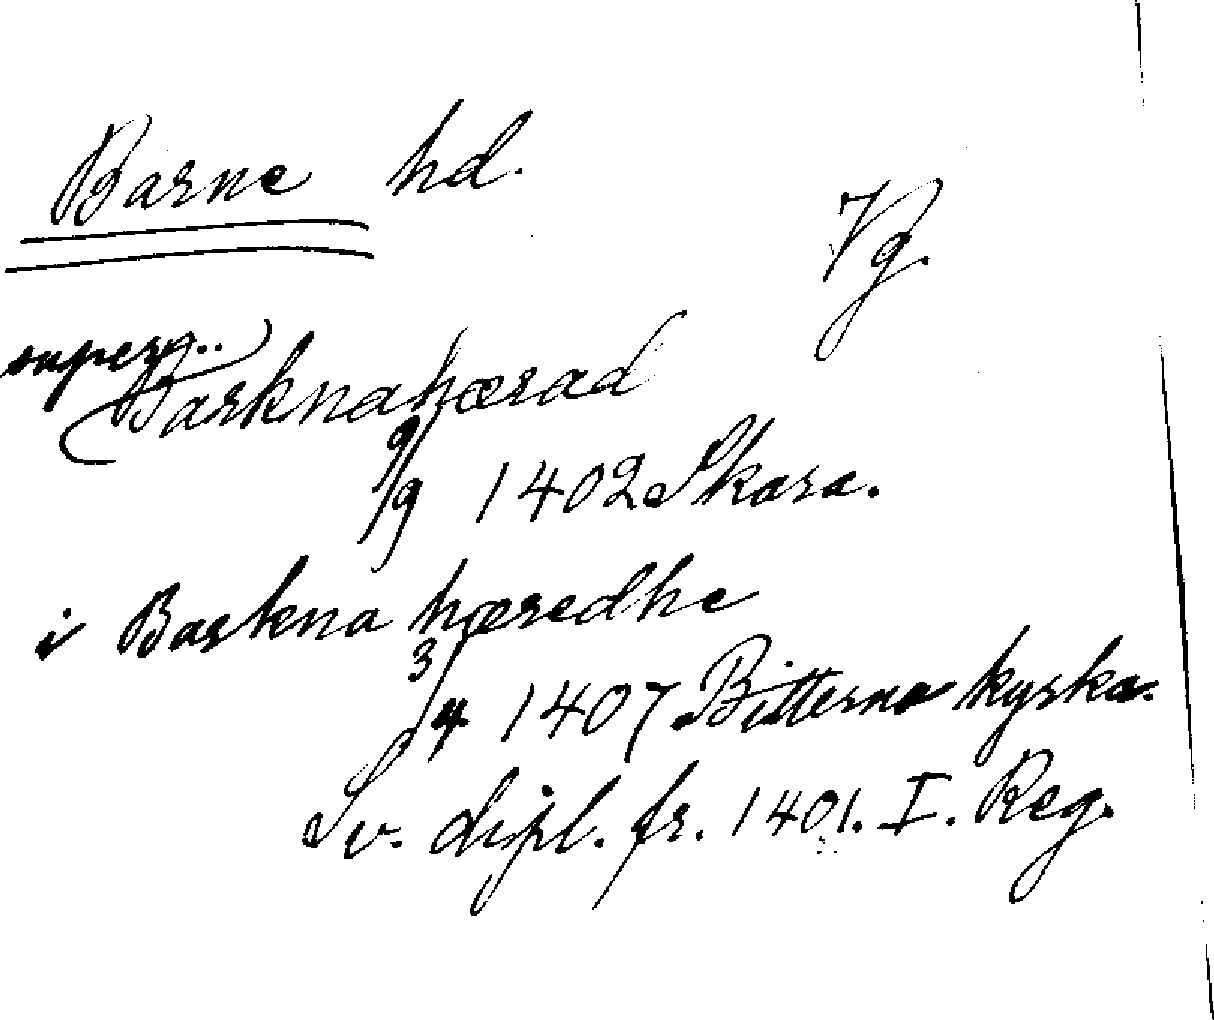 Barne hd.
Vg.
Barknahærad
9/9 1402 Skara.
i Barkna hæredhe
3/4 1407 Bitterna kyrka.
Sv. dipl. fr. 1401. I. Reg.